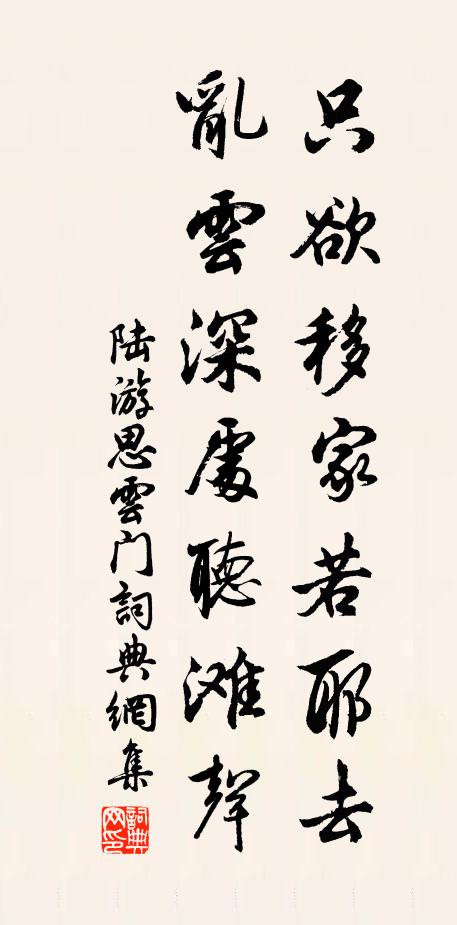 只欲移家若耶去
亂雲深處聽滩聲
陆游思雲门詞典網集
詞典网印